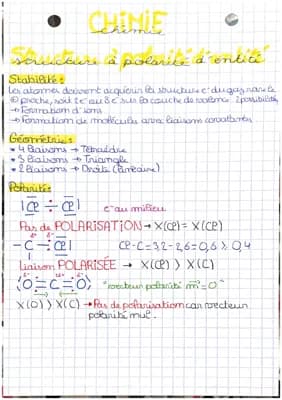 CHIMIE
chimie
Structure & polarité d'entité
Stabilité :
Les atomes doivent acquérir la structure e⁻ du gaz rare le
⊕ proche, soit 2e⁻ ou 8e⁻ sur la couche de valence. 2 possibilités
→ Formation d'ions
→ Formation de molécules avec liaisons covalentes
Géométrie :
• 4 liaisons → Tétraèdre
• 3 liaisons → Triangle
• 2 liaisons → Droite (linéaire)
Polarité :
|Cl ÷ Cl| e⁻ au milieu
Pas de POLARISATION → X(Cl) = X(Cl)
δ+ δ-
- C ÷ Cl| Cl-C = 3,2 - 2,6 = 0,6 ≥ 0,4
Liaison POLARISÉE → X(Cl) > X(C)
δ- 2δ+ δ-
⟨O=C=O⟩ "vecteur polarité m⃗ = 0"
X(O) > X(C) → Pas de polarisation car vecteur
polarité nul.